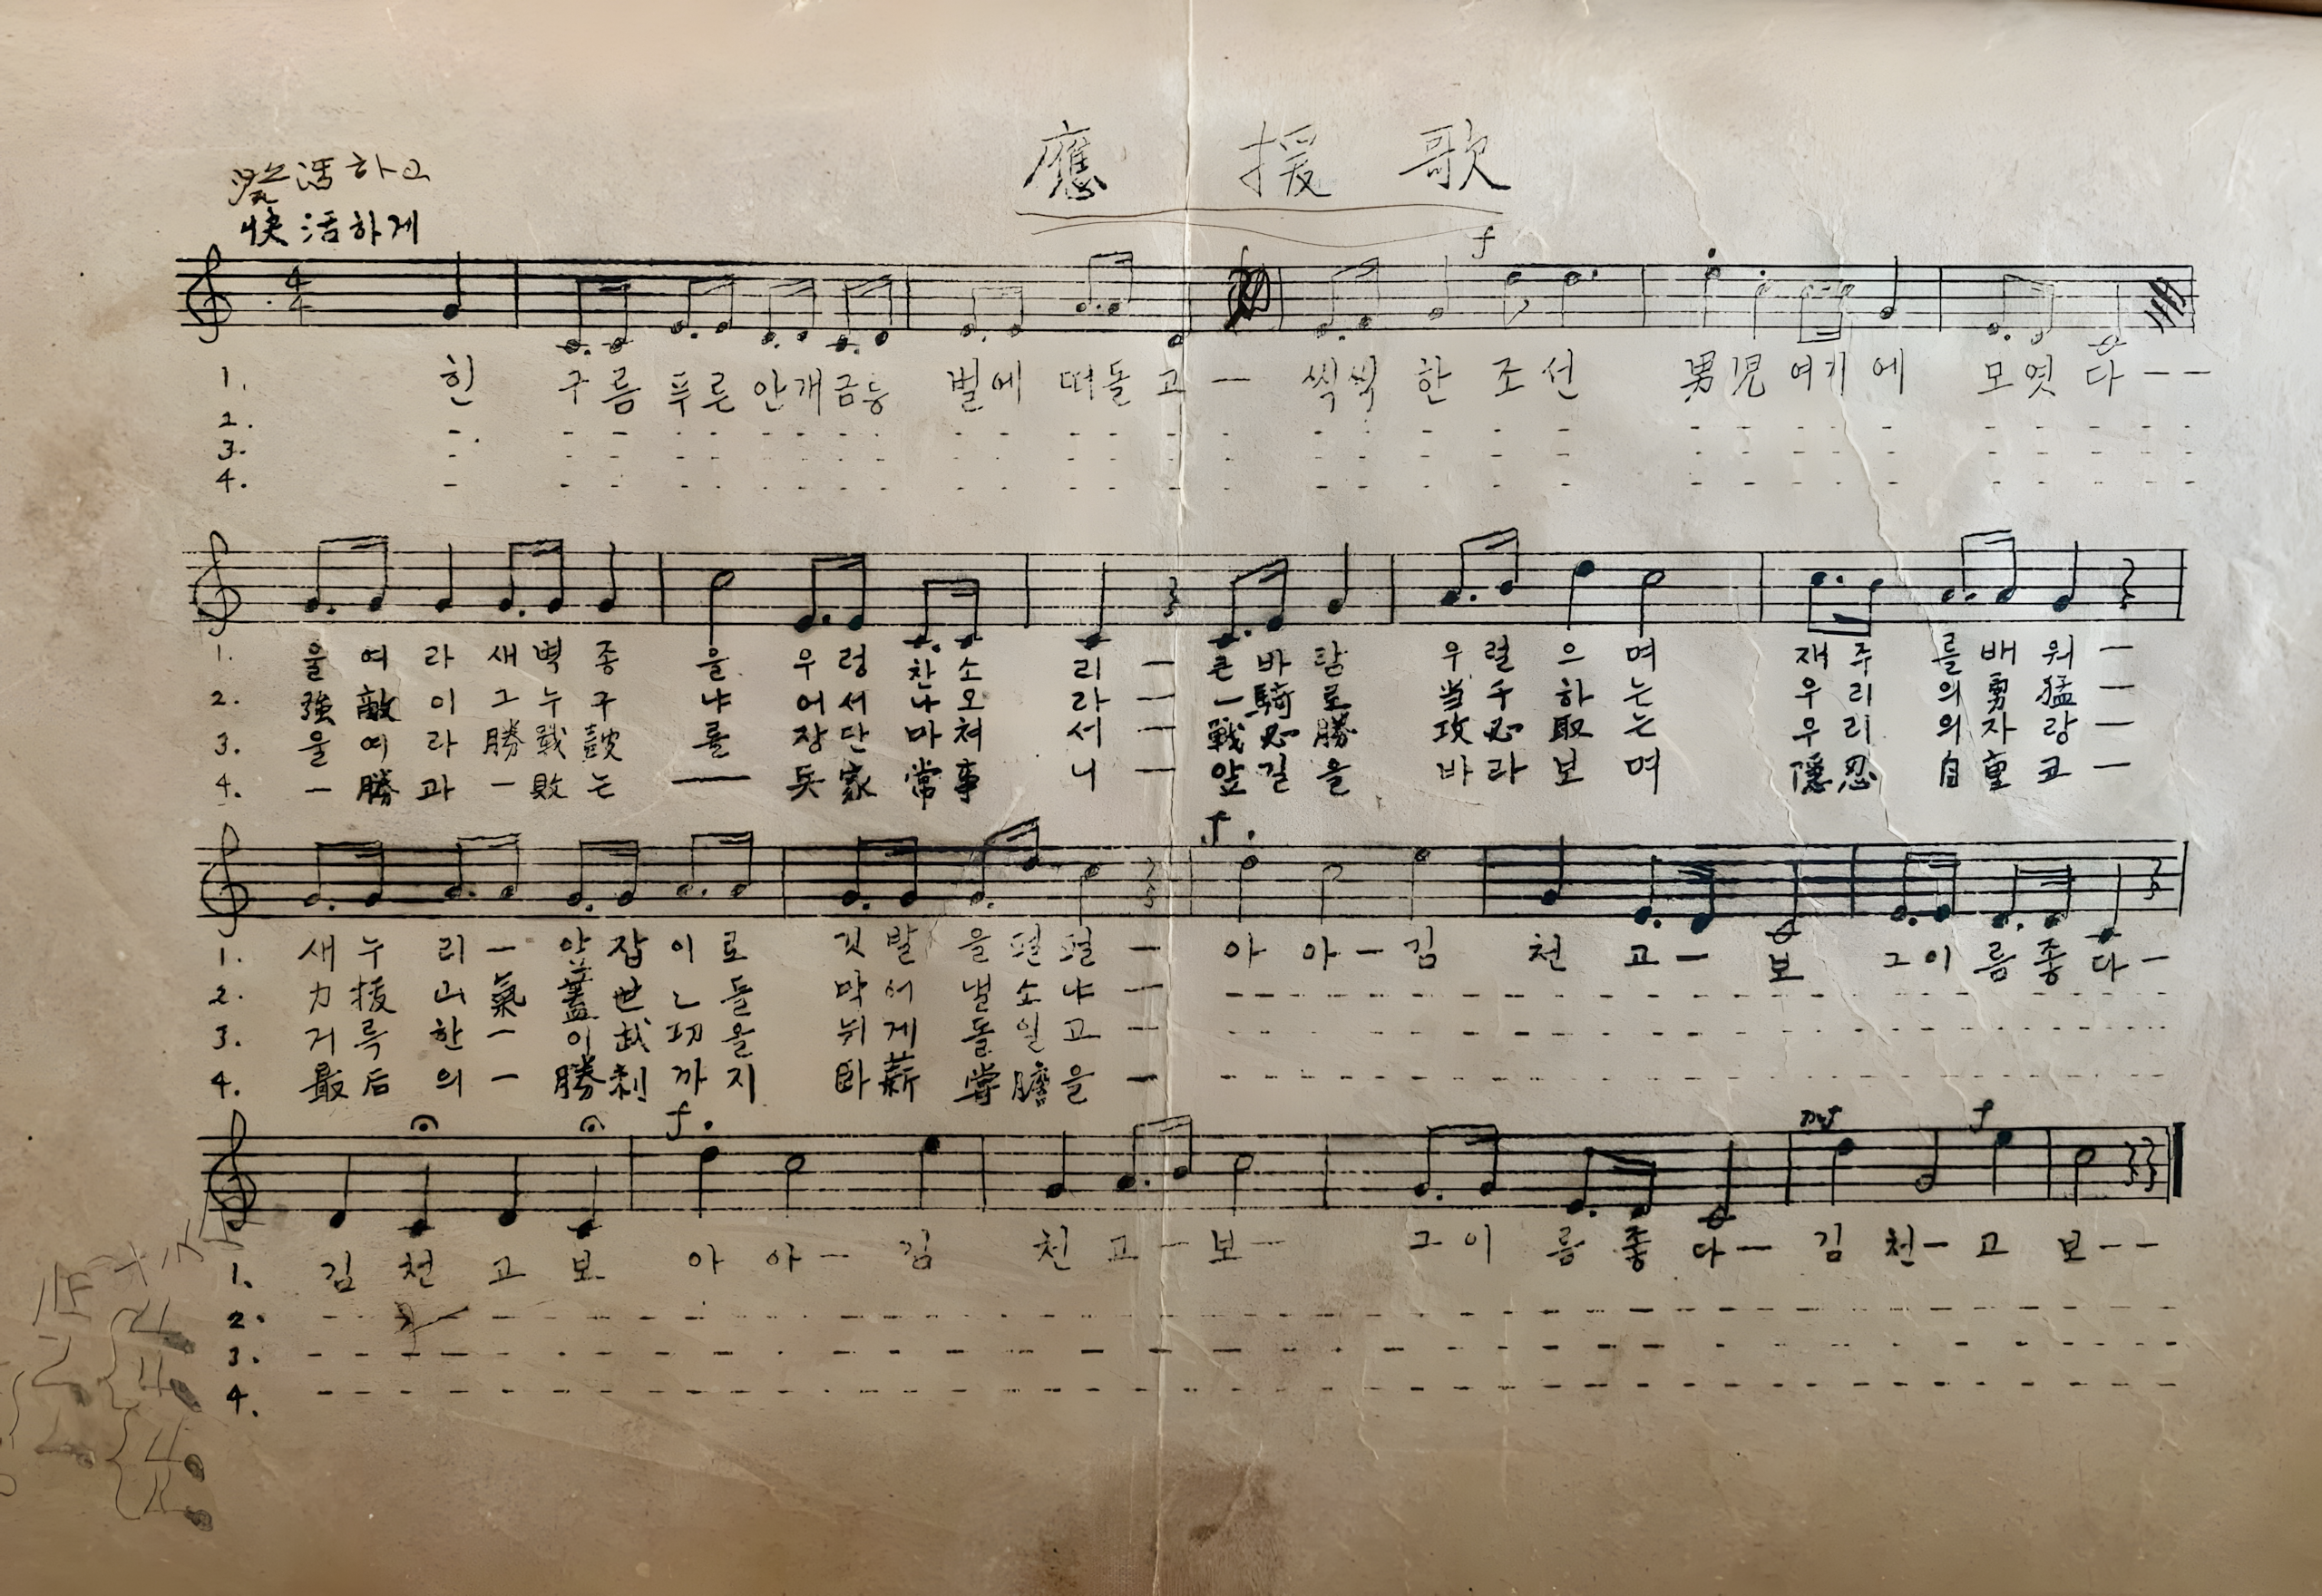 應援歌
活하고
快活하게
f
4
4
1. 힌 구름 푸른 안개금릉 벌에 떠돌고 — 씩씩한 조선 男児여기에 모엿다 — —
2.
3.
4.
1. 울여라 새벽종을 우렁찬소리 — 큰바람 우렬으며 재주를배워 —
2. 強敵이 그누구냐 어서나오라 — 一騎로 当千하는 우리의勇猛 —
3. 울여라 勝戰鼓를 장단마쳐서 — 戰必勝 攻必取는 우리의자랑 —
4. 一勝과 一敗는 — 兵家常事니 — 앞길을 바라보며 隱忍自重코 —
f.
1. 새누리 — 앞잡이로 깃발을펄펄 — 아아 — 김천고 — 보 그이름좋다 —
2. 力拔山氣蓋世ㄴ들 막어낼소냐 —
3. 거룩한 — 이武功을 뉘게돌일고 —
4. 最后의 — 勝利까지 臥薪嘗膽을 —
f. mf f
1. 김천고보 아아 — 김천고 — 보 — 그이름좋다 — 김천 — 고보 — —
2.
3.
4.